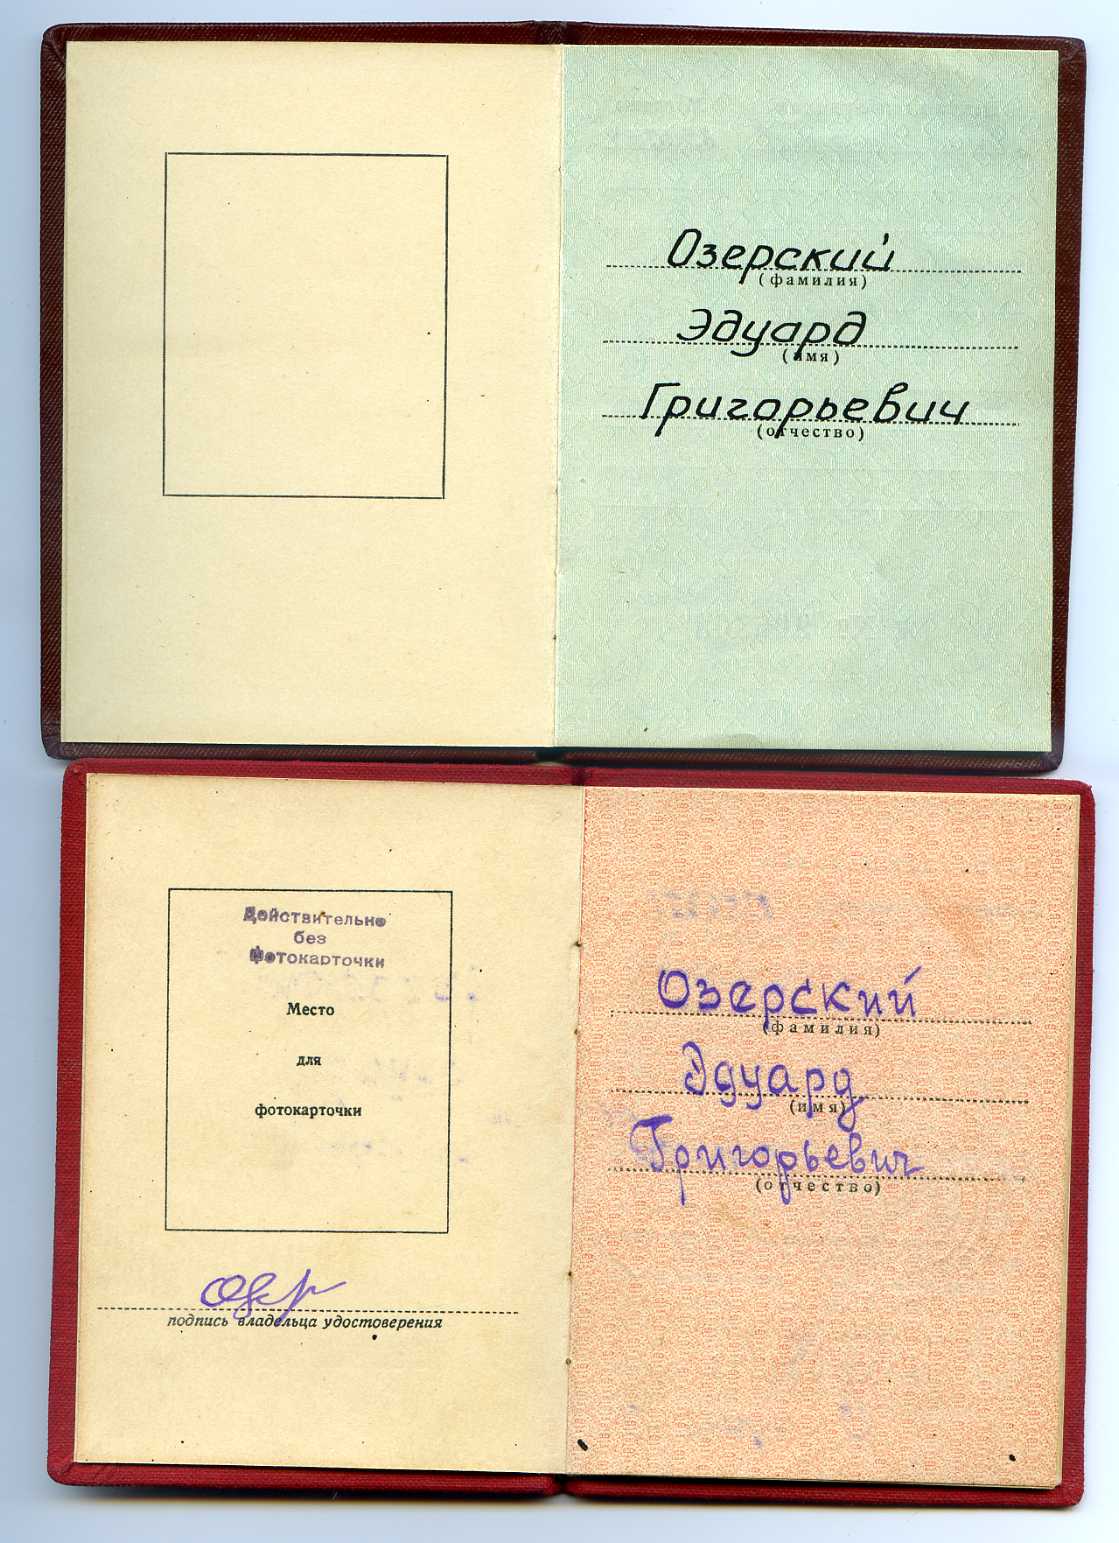 Озерский
(фамилия)
Эдуард
(имя)
Григорьевич
(отчество)
Действительно
без
фотокарточки
Место
для
фотокарточки
подпись владельца удостоверения
Озерский
(фамилия)
Эдуард
(имя)
Григорьевич
(отчество)